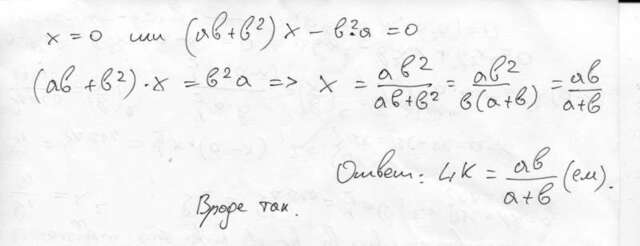 x = 0 или (ab+b²)x - b²·a = 0
(ab + b²)·x = b²a => x = ab²/(ab+b²) = ab²/(b(a+b)) = ab/(a+b)
Ответ: LK = ab/(a+b) (ем).
Вроде так.